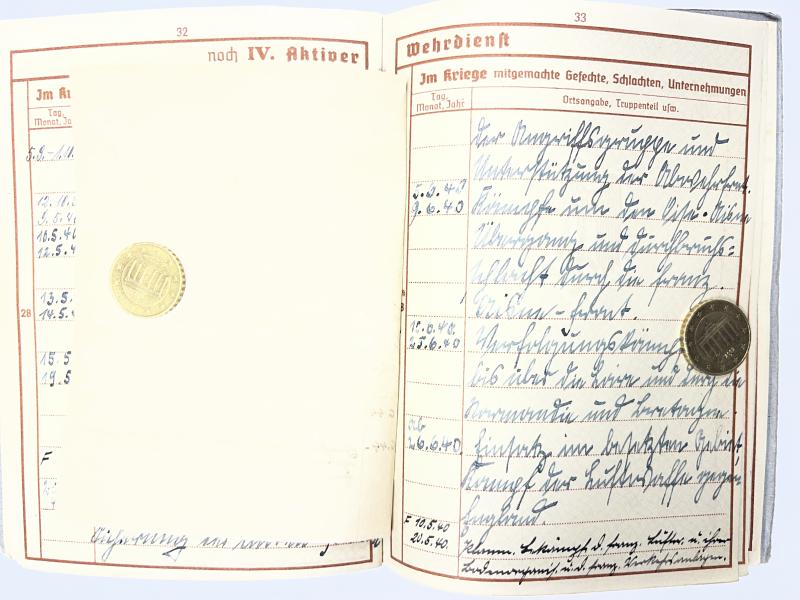 32
noch IV. Aktiver
Im
Tag,
Monat,
12.5.4
13.5.
14.5.
28
15.5
19.5
F
Sicherung
33
Wehrdienst
Im Kriege mitgemachte Gefechte, Schlachten, Unternehmungen
Tag, Monat, Jahr
Ortsangabe, Truppenteil usw.
der Angriffsgruppe und
Unterstützung der Abwehrfront.
5.6.40
9.6.40 Kämpfe um den Oise-Aisne
Übergang und Durchbruchs=
schlacht durch die franz.
Aisne-Front.
25.6.40 Verfolgungskämpf
bis über die Loire und durch die
Normandie und Bretagne.
ab
26.6.40 Einsatz im besetzten Gebiet,
Kampf der Luftwaffe gegen
England.
F 10.5.40
20.5.40. Bekämpf. d. franz. Luftw. u. ihrer
Bodenorganis. u. d. franz. Verkehrsanlagen.